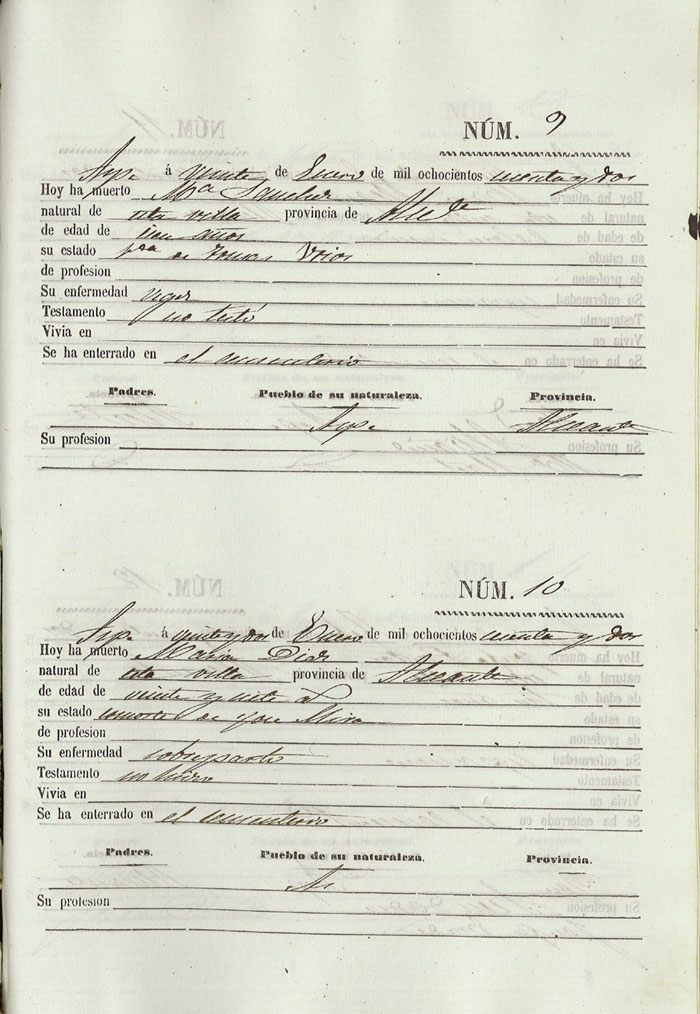 NÚM. 9
Aspe á veinte de Enero de mil ochocientos y dos
Hoy ha muerto Mª Sanchez
natural de esta villa provincia de Alicte
de edad de años
su estado vda de
de profesion
Su enfermedad vejez
Testamento no testó
Vivia en
Se ha enterrado en el cementerio
Padres. Pueblo de su naturaleza. Provincia.
Aspe Alicante
Su profesion
NÚM. 10
Aspe á veinte y dos de Enero de mil ochocientos y dos
Hoy ha muerto Maria Diaz
natural de esta villa provincia de Alicante
de edad de veinte y siete a
su estado consorte de Jose Mira
de profesion
Su enfermedad sobreparto
Testamento no
Vivia en
Se ha enterrado en el cementerio
Padres. Pueblo de su naturaleza. Provincia.
Su profesion